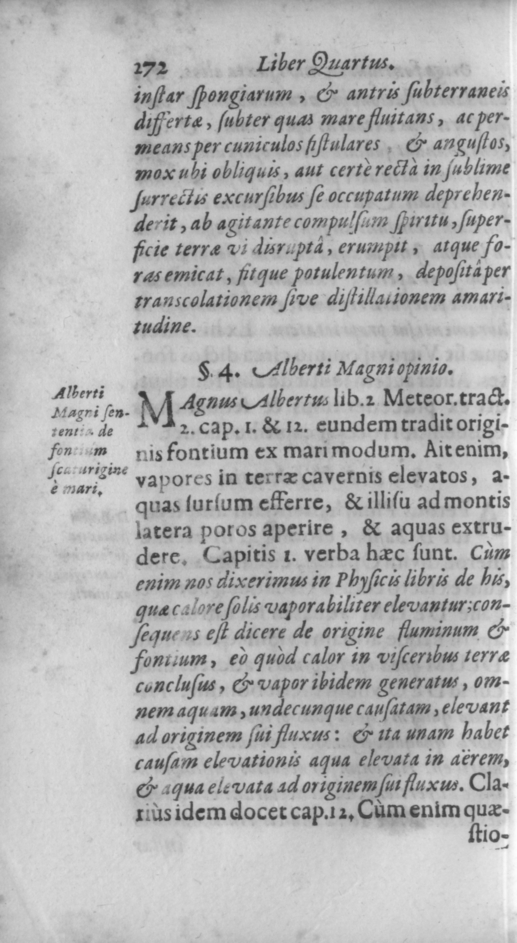 272 Liber Quartus.
inſtar ſpongiarum, & antris ſubterraneis
differtæ, ſubter quas mare fluitans, ac per-
means per cuniculos fiſtulares, & anguſtos,
mox ubi obliquis, aut certè rectà in ſublime
ſurrectis excurſibus ſe occupatum deprehen-
derit, ab agitante compulſum ſpiritu, ſuper-
ficie terræ vi disruptâ, erumpit, atque fo-
ras emicat, fitque potulentum, depoſitâ per
transcolationem ſive diſtillationem amari-
tudine.
§. 4. Alberti Magni opinio.
Alberti
Magni ſen-
tentia de
fontium
ſcaturigine
è mari.
MAgnus Albertus lib. 2 Meteor. tract.
2. cap. 1. & 12. eundem tradit origi-
nis fontium ex mari modum. Ait enim,
vapores in terræ cavernis elevatos, a-
quas ſurſum efferre, & illiſu ad montis
latera poros aperire, & aquas extru-
dere. Capitis 1. verba hæc ſunt. Cùm
enim nos dixerimus in Phyſicis libris de his,
quæ calore ſolis vaporabiliter elevantur; con-
ſequens eſt dicere de origine fluminum &
fontium, eò quòd calor in viſceribus terræ
concluſus, & vapor ibidem generatus, om-
nem aquam, undecunque cauſatam, elevant
ad originem ſui fluxus: & ita unam habet
cauſam elevationis aqua elevata in aërem,
& aqua elevata ad originem ſui fluxus. Cla-
riùs idem docet cap. 12. Cùm enim quæ-
ſtio-